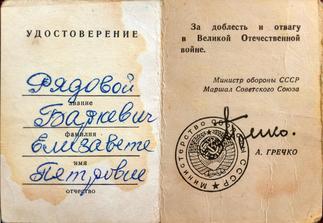 УДОСТОВЕРЕНИЕ
Рядовой
звание
Баркевич
фамилия
Елизавете
имя
Петровне
отчество
За доблесть и отвагу
в Великой Отечественной
войне.
Министр обороны СССР
Маршал Советского Союза
А. ГРЕЧКО
Министерство обороны СССР